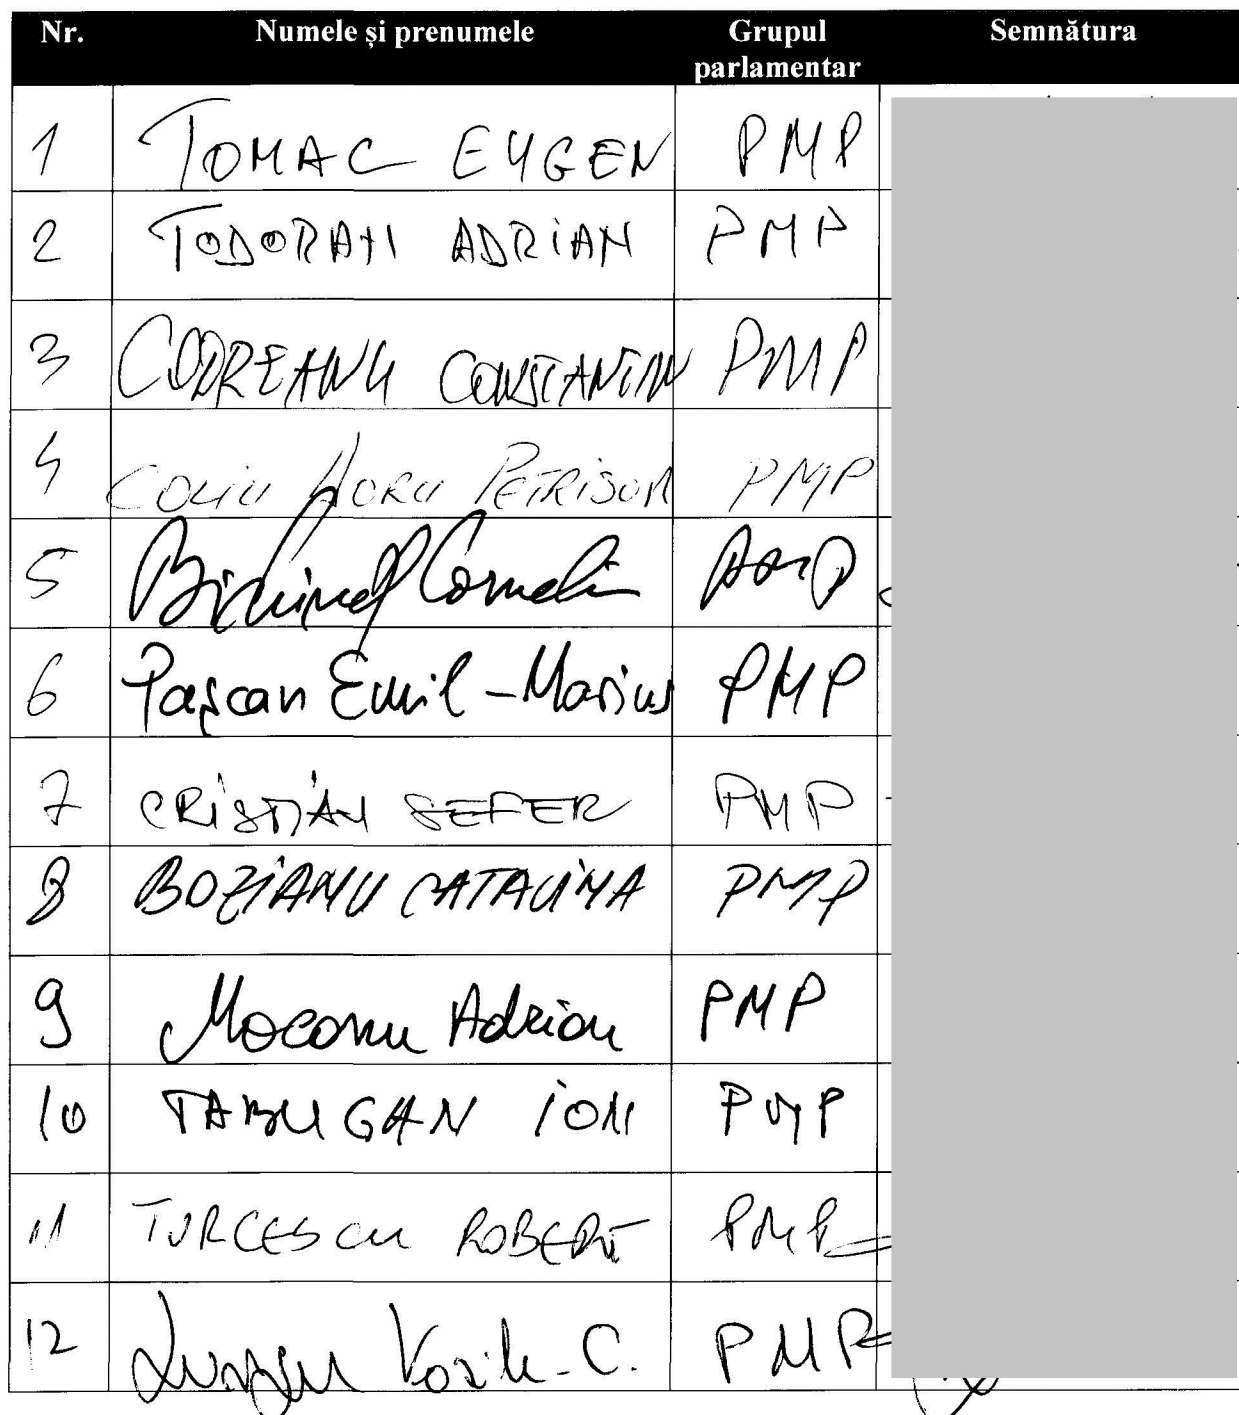 Nr. Numele și prenumele Grupul parlamentar Semnătura
1 TOMAC EUGEN PMP
2 TODORAN ADRIAN PMP
3 CODREANU CONSTANTIN PMP
4 COLIU DORU PETRISOR PMP
5 Bichineț Corneliu PMP
6 Pașcan Emil-Marius PMP
7 CRISTIAN SEFER PMP
8 BOZIANU CATALINA PMP
9 Mocanu Adrian PMP
10 TABUGAN ION PMP
11 TURCESCU ROBERT PMP
12 Vasile-C. PMP